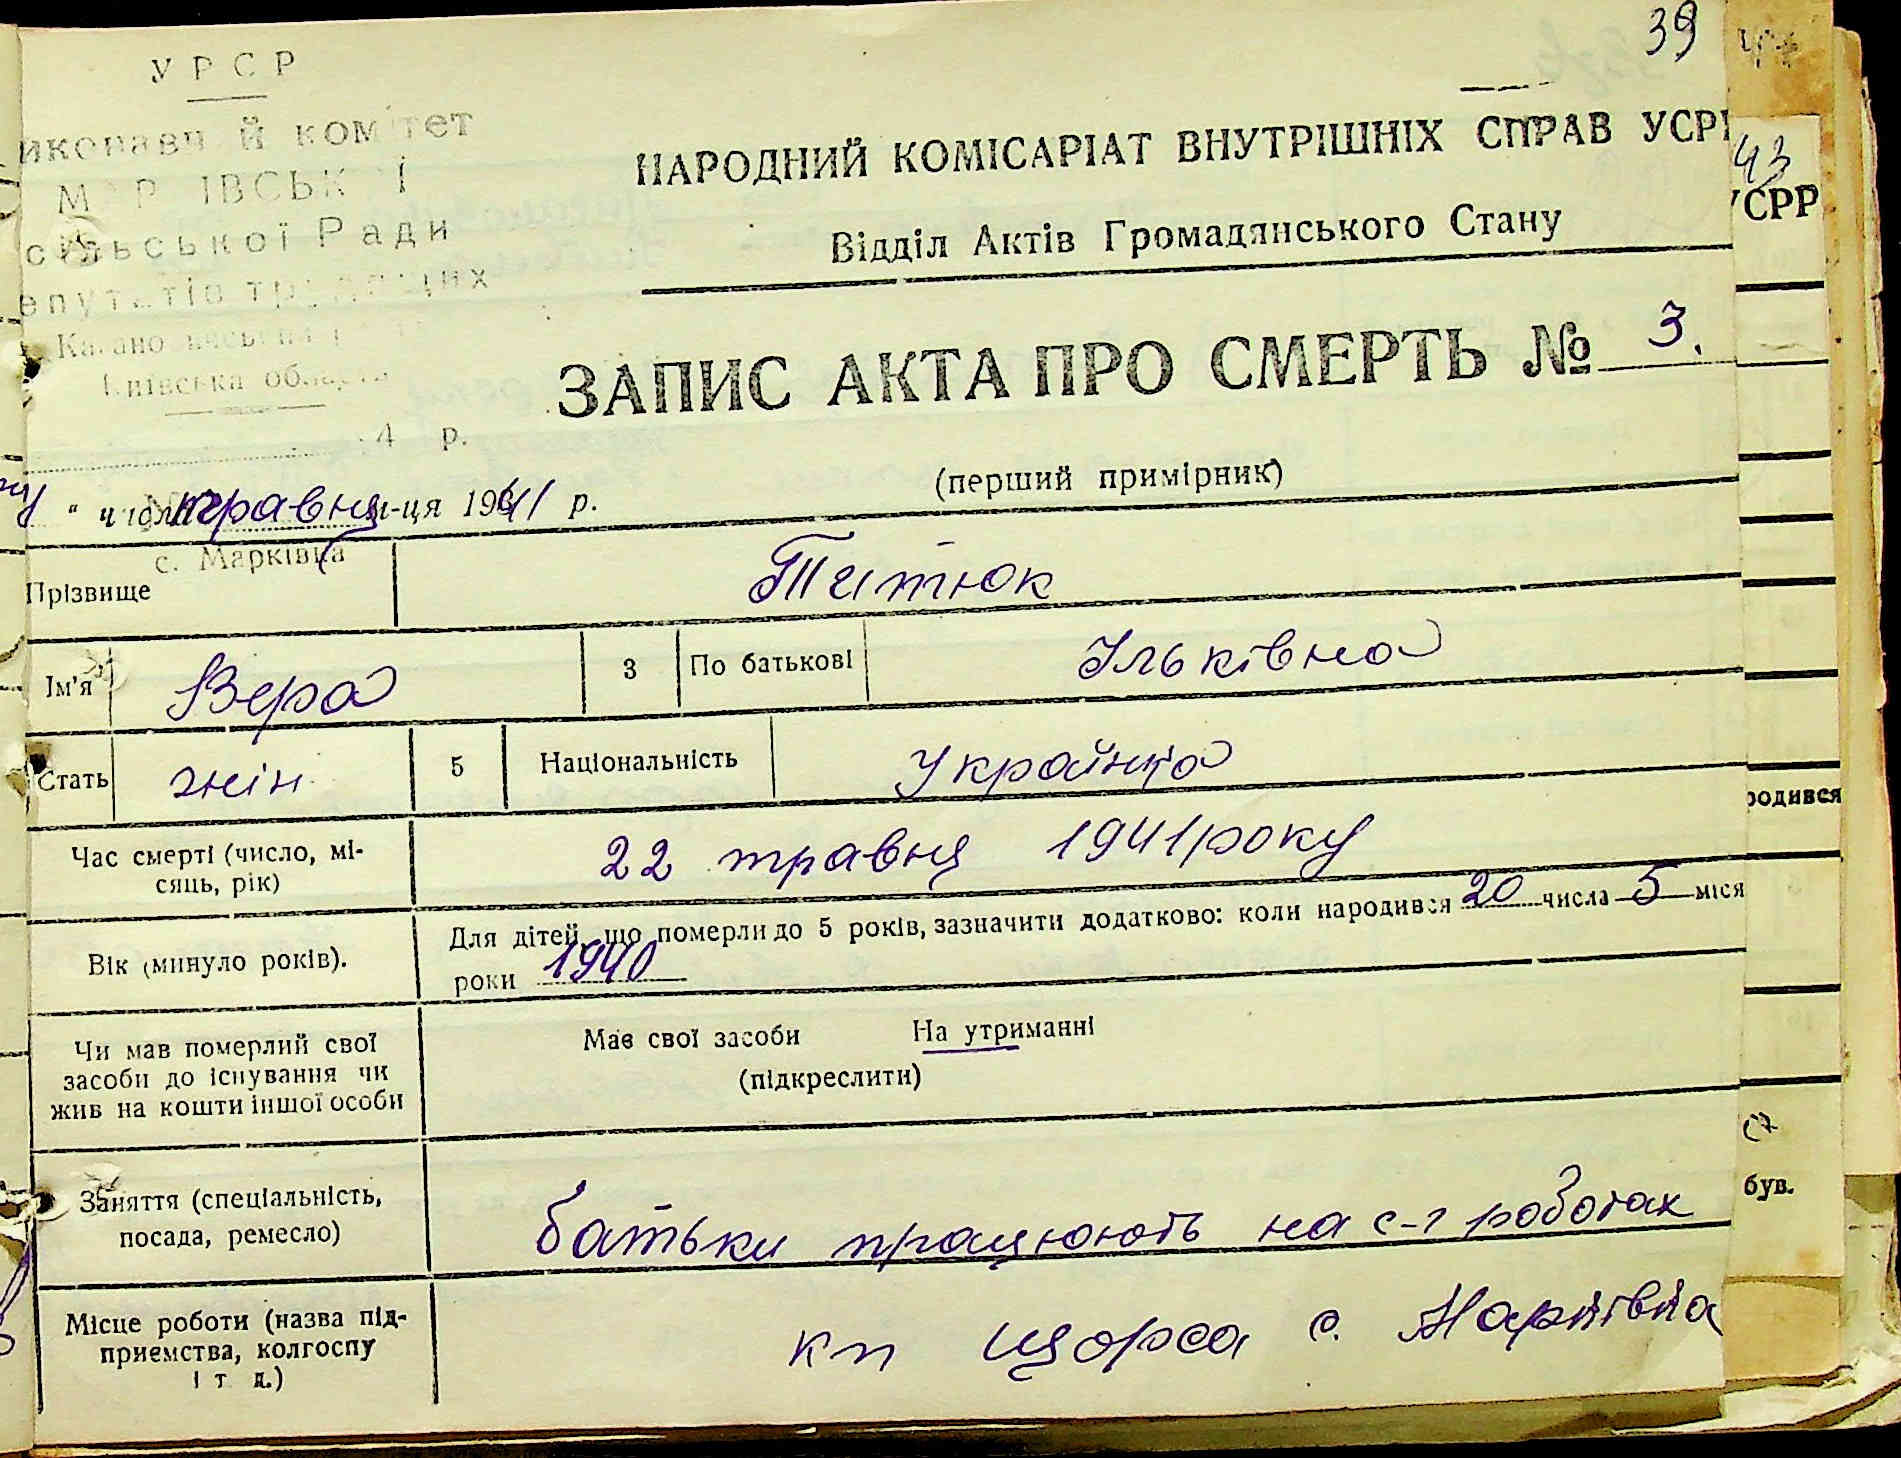 39
УРСР
иконавч й комітет
М Р ІВСЬК І
сільської Ради
епутатів трудящих
Київська область
4 р.
НАРОДНИЙ КОМІСАРІАТ ВНУТРІШНІХ СПРАВ УСРР
43
УСРР
Відділ Актів Громадянського Стану
ЗАПИС АКТА ПРО СМЕРТЬ № 3.
(перший примірник)
" травня м-ця 1941 р.
с. Марківка
Прізвище Титюк
Ім'я Вера 3 По батькові Ільківна
Стать жін. 5 Національність Українка
родився
Час смерті (число, мі-
сяць, рік) 22 травня 1941 року
Вік (минуло років). Для дітей, що померли до 5 років, зазначити додатково: коли народився 20 числа 5 міся
роки 1940
Чи мав померлий свої
засоби до існування чи
жив на кошти іншої особи
Має свої засоби На утриманні
(підкреслити)
був.
Заняття (спеціальність,
посада, ремесло) батьки працюють на с-г роботах
Місце роботи (назва під-
приємства, колгоспу
і т д.) кп Щорса с. Марківка